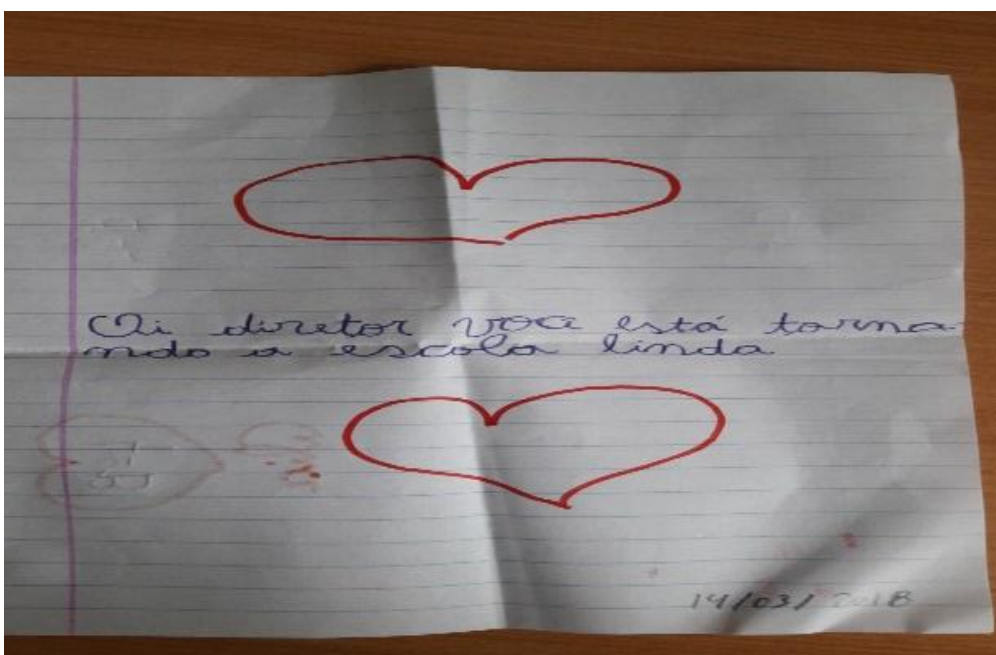 Oi diretor voce está torna-
ndo a escola linda
14/03/2018